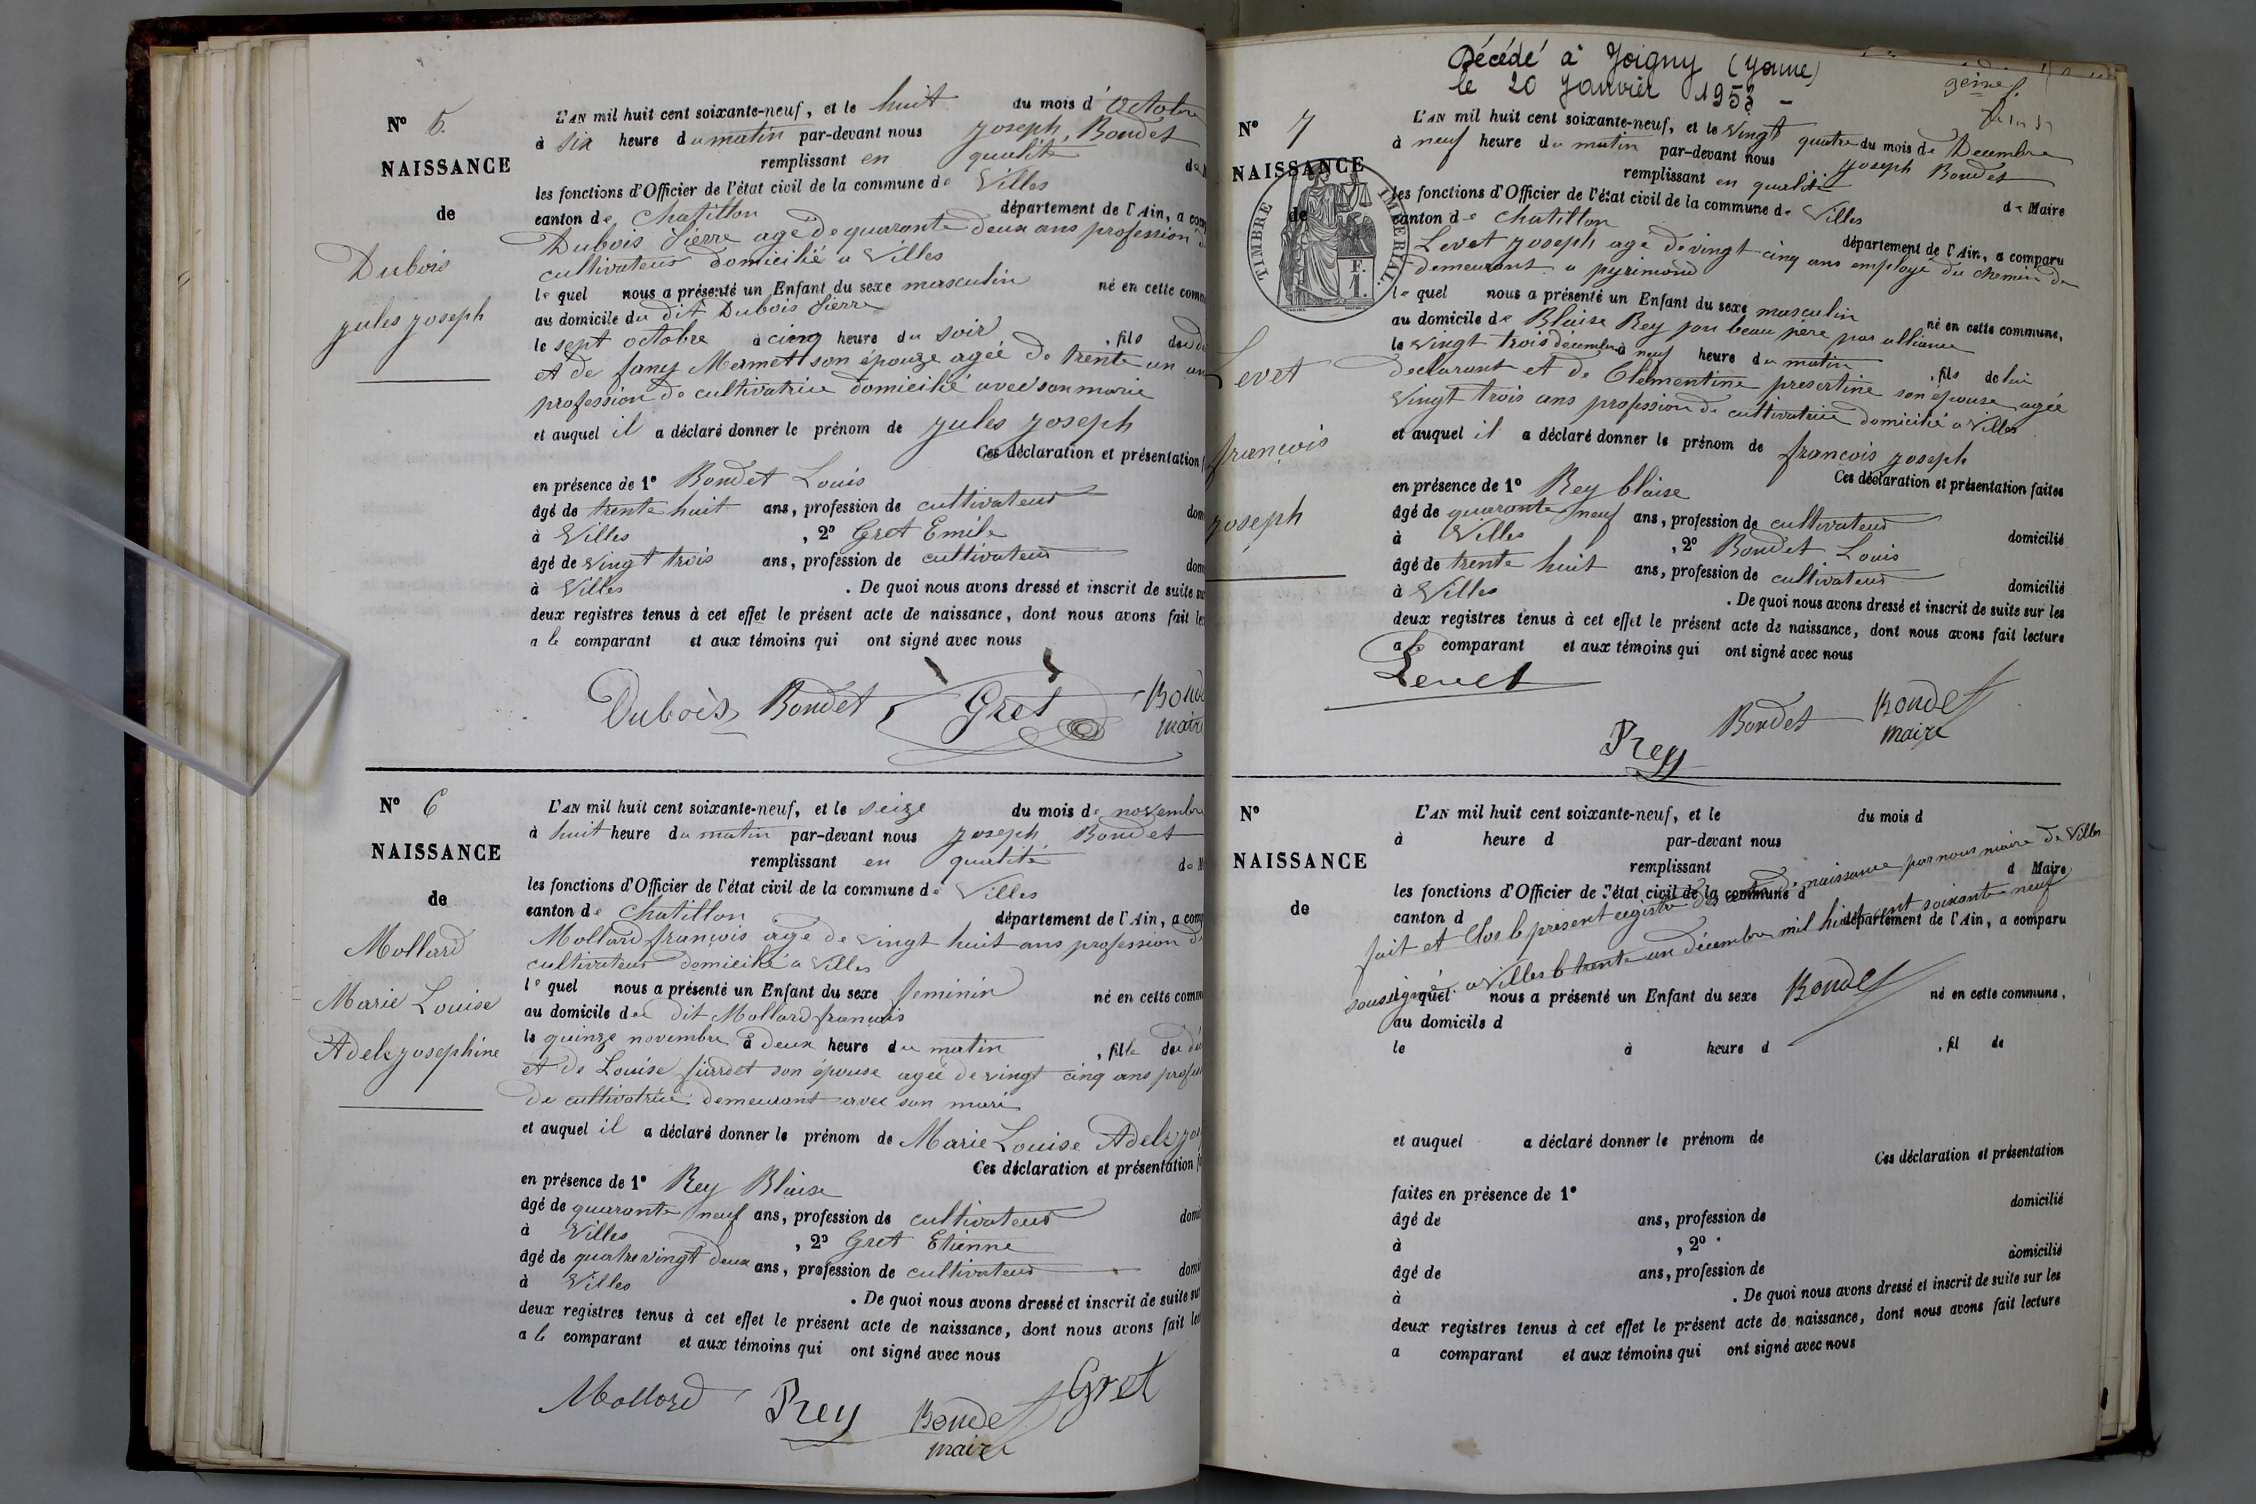 N° 5.
NAISSANCE
de
Dubois
jules joseph
L'AN mil huit cent soixante-neuf, et le huit du mois d'octobre
à six heure du matin par-devant nous joseph Bondet
remplissant en qualité de
les fonctions d'Officier de l'état civil de la commune de Villes
canton de Chatillon département de l'Ain, a
Dubois Pierre agé de quarante deux ans profession
cultivateur domicilié a Villes
lequel nous a présenté un Enfant du sexe masculin né en cette
au domicile du dit Dubois Pierre
le sept octobre à cinq heure du soir, fils
et de fany Mermet son épouze agée de trente un
profession de cultivatrice domicilié avec son marie
et auquel il a déclaré donner le prénom de jules joseph
Ces déclaration et présentation
en présence de 1° Bondet Louis
âgé de trente huit ans, profession de cultivateur
à Villes, 2° Gret Emile
âgé de vingt trois ans, profession de cultivateur
à Villes. De quoi nous avons dressé et inscrit de suite
deux registres tenus à cet effet le présent acte de naissance, dont nous avons fait
a le comparant et aux témoins qui ont signé avec nous
Dubois Bondet Gret
N° 6
NAISSANCE
de
Mollard
Marie Louise
Adele josephine
L'AN mil huit cent soixante-neuf, et le seize du mois de novembre
à huit heure du matin par-devant nous joseph Bondet
remplissant en qualité de
les fonctions d'Officier de l'état civil de la commune de Villes
canton de Chatillon département de l'Ain, a
Mollard françois agé de vingt huit ans profession de
cultivateur domicilié a Villes
lequel nous a présenté un Enfant du sexe feminin né en cette
au domicile du dit Mollard françois
le quinze novembre à deux heure du matin, fille du
et de Louise son épouse agée de vingt cinq ans
de cultivatrice demeurant avec son mari
et auquel il a déclaré donner le prénom de Marie Louise Adele
Ces déclaration et présentation
en présence de 1° Rey Blaise
âgé de quarante neuf ans, profession de cultivateur
à Villes, 2° Gret Etienne
âgé de quatre vingt deux ans, profession de cultivateur
à Villes. De quoi nous avons dressé et inscrit de suite
deux registres tenus à cet effet le présent acte de naissance, dont nous avons fait
a le comparant et aux témoins qui ont signé avec nous
Mollard Rey Bondet Gret
maire
Décédé à Joigny (Yonne)
le 20 Janvier 1953 -
N° 7
NAISSANCE
de
TIMBRE IMPERIAL.
F.
1.
Levet
françois
joseph
L'AN mil huit cent soixante-neuf, et le vingt quatre du mois de Decembre
à neuf heure du matin par-devant nous joseph Bondet
remplissant en qualité de Maire
les fonctions d'Officier de l'état civil de la commune de Villes
canton de chatillon département de l'Ain, a comparu
Levet joseph age de vingt cinq ans employé du chemin de
demeurant a pyrimond
lequel nous a présenté un Enfant du sexe masculin né en cette commune,
au domicile de Blaise Rey son beau père par alliance
le vingt trois decembre à neuf heure du matin, fils de lui
declarant et de Clementine son épouse agée
vingt trois ans profession de cultivatrice domicilié a Villes
et auquel il a déclaré donner le prénom de françois joseph
Ces déclaration et présentation faites
en présence de 1° Rey blaise
âgé de quarante neuf ans, profession de cultivateur domicilié
à Villes, 2° Bondet Louis
âgé de trente huit ans, profession de cultivateur domicilié
à Villes. De quoi nous avons dressé et inscrit de suite sur les
deux registres tenus à cet effet le présent acte de naissance, dont nous avons fait lecture
a le comparant et aux témoins qui ont signé avec nous
Levet
Rey Bondet Bondet
maire
N°
NAISSANCE
de
L'AN mil huit cent soixante-neuf, et le du mois d
à heure d par-devant nous
remplissant d Maire
les fonctions d'Officier de l'état civil de la commune d
canton d département de l'Ain, a comparu
fait et Clos le present registre des naissance par nous maire de Villes
soussigné a Villes le trente un décembre mil huit cent soixante neuf
Bondet
lequel nous a présenté un Enfant du sexe né en cette commune,
au domicile d
le à heure d, fil de
et auquel a déclaré donner le prénom de
Ces déclaration et présentation
faites en présence de 1°
âgé de ans, profession de domicilié
à, 2°
âgé de ans, profession de domicilié
à. De quoi nous avons dressé et inscrit de suite sur les
deux registres tenus à cet effet le présent acte de naissance, dont nous avons fait lecture
a comparant et aux témoins qui ont signé avec nous